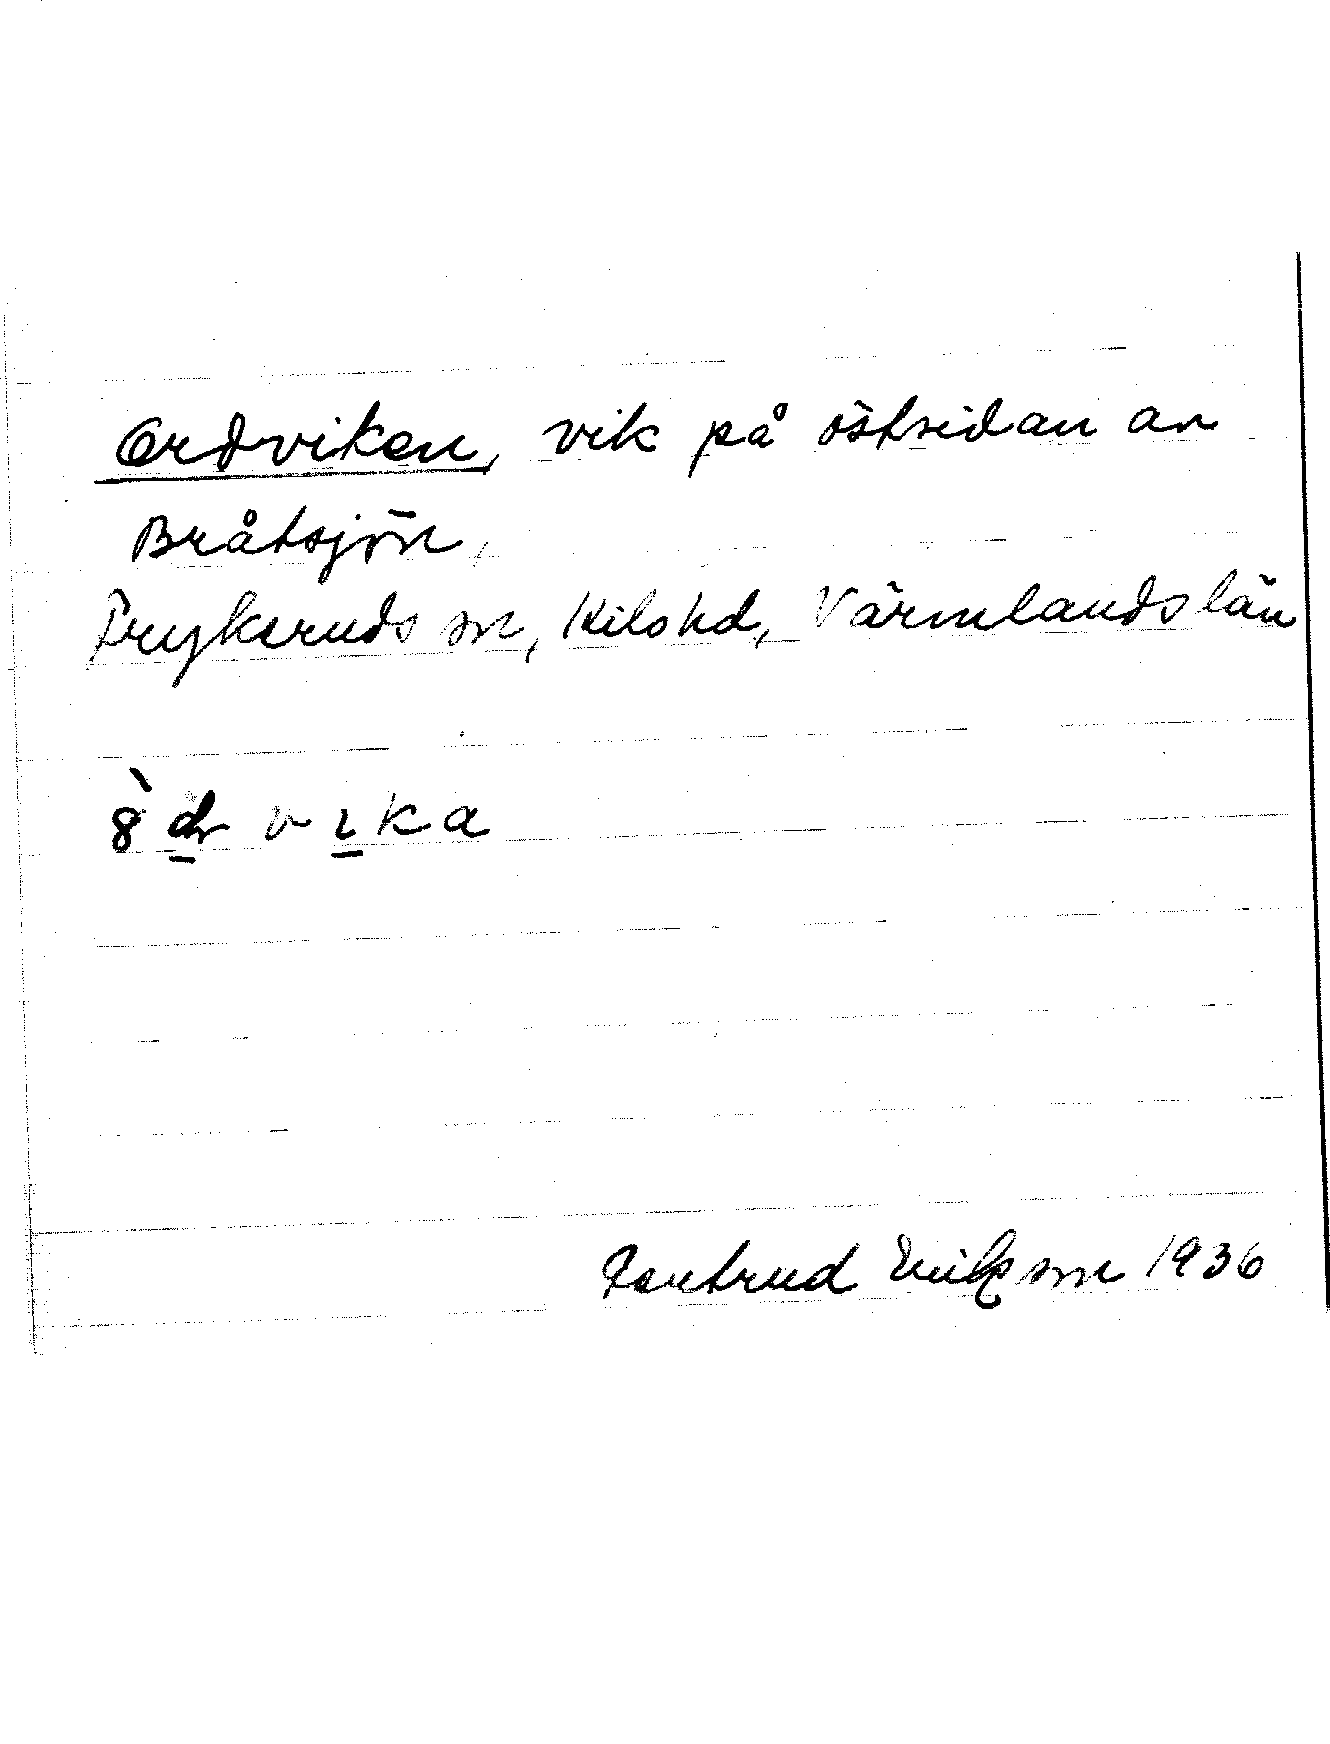 Ordviken, vik på östsidan av
Bråtsjön,
Frykeruds sn, Kils hd, Värmlands län
vika
Gertrud Eriksson 1936